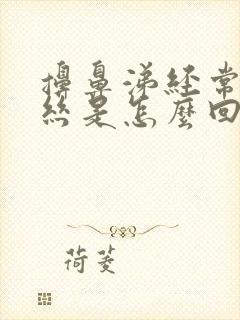 擤鼻涕經常
絲是怎麼回
荷菱